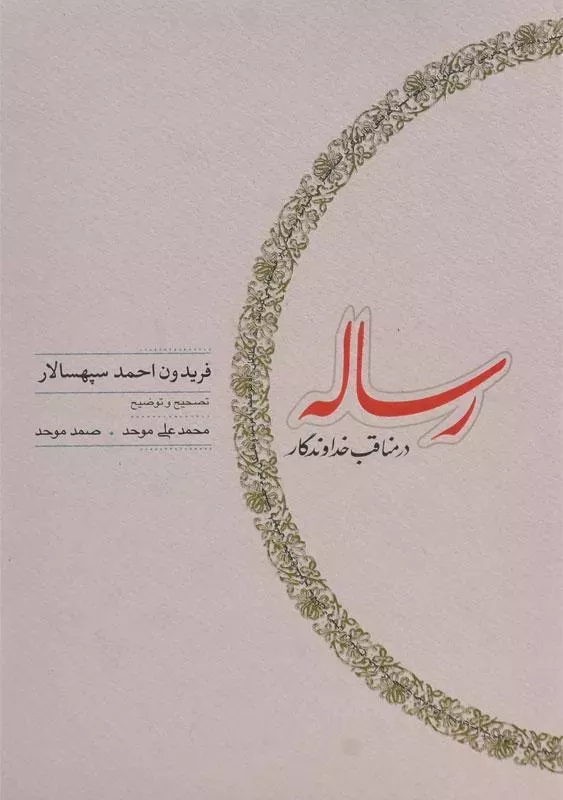 رساله
در مناقب خداوندگار
فریدون احمد سپهسالار
تصحیح و توضیح
محمدعلی موحد • صمد موحد